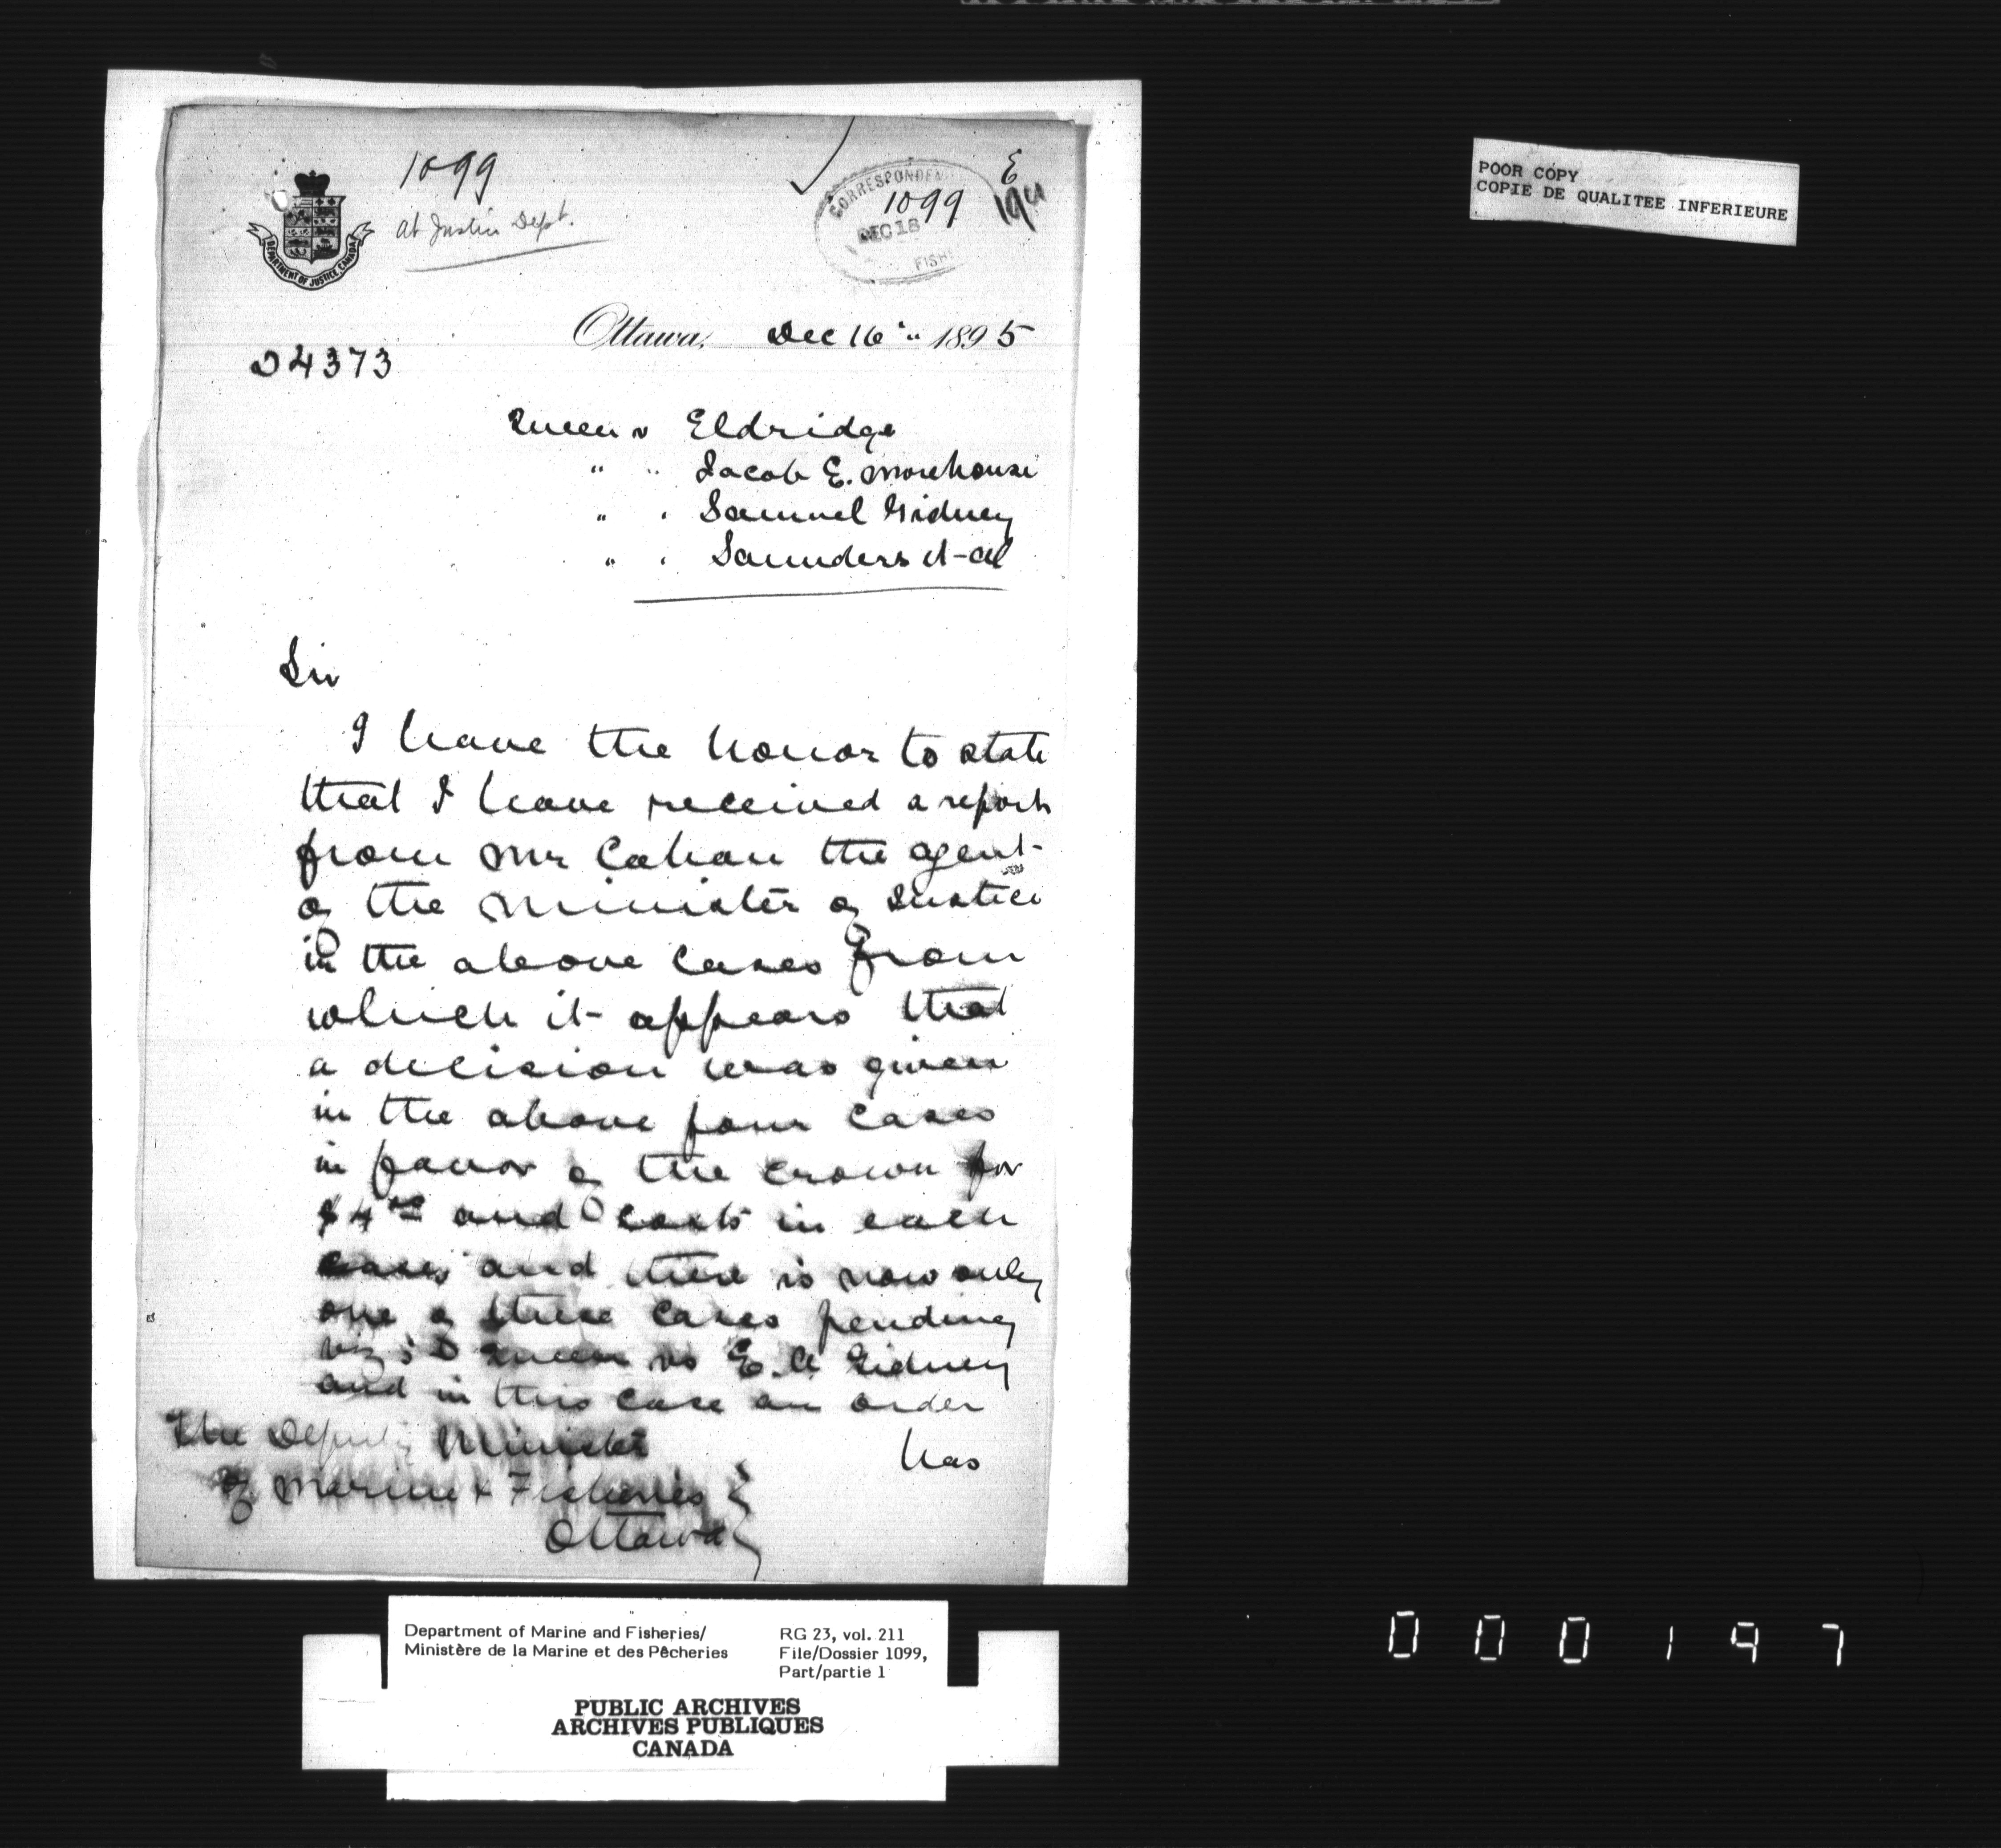 1099
at Justice Dept.
DEPARTMENT OF JUSTICE CANADA
CORRESPONDEN
1099
DEC 18
FISH
E
Ottawa, Dec 16th 1895
24373
Queen v Eldridge
" " Jacob E. Morehouse
" " Samuel Gidney
" " Saunders et-al
Sir
I have the honor to state
that I have received a report
from Mr Cahan the agent
of the Minister of Justice
in the above cases from
which it appears that
a decision was given
in the above four cases
in favor of the crown for
$4 00 and costs in each
case, and there is now only
one of these cases pending
viz: Queen vs E. A Gidney
and in this case an order
has
The Deputy Minister
of Marine & Fisheries
Ottawa
POOR COPY
COPIE DE QUALITEE INFERIEURE
Department of Marine and Fisheries/
Ministère de la Marine et des Pêcheries
RG 23, vol. 211
File/Dossier 1099,
Part/partie 1
PUBLIC ARCHIVES
ARCHIVES PUBLIQUES
CANADA
000197